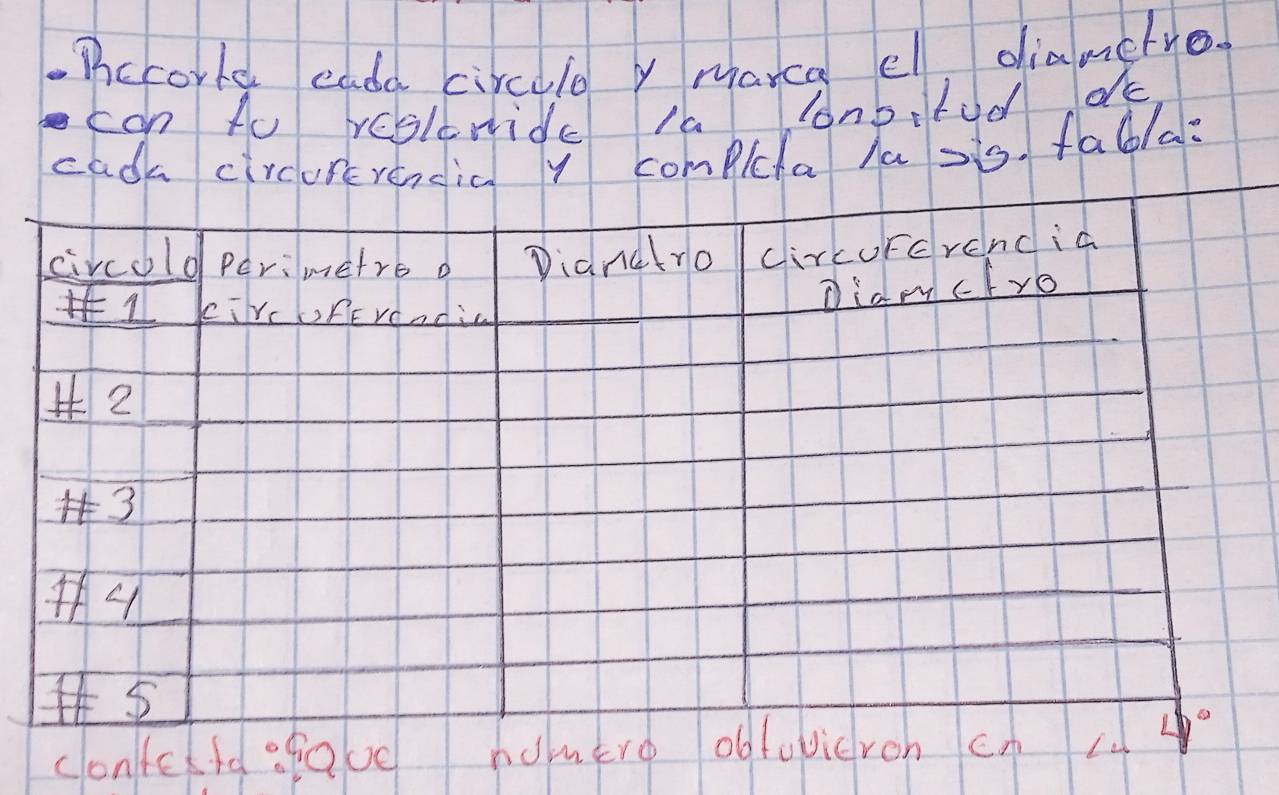 • Recorta cada circulo y marca el diametro.
• con tu reglamide la longitud de
cada circuferencia y completa la sig. tabla:
circulo Perimetro o Diametro circuferencia
#1 circuferencia Diametro
#2
#3
#4
#5
contesta: ¿Que número obtuvieron en la 4°